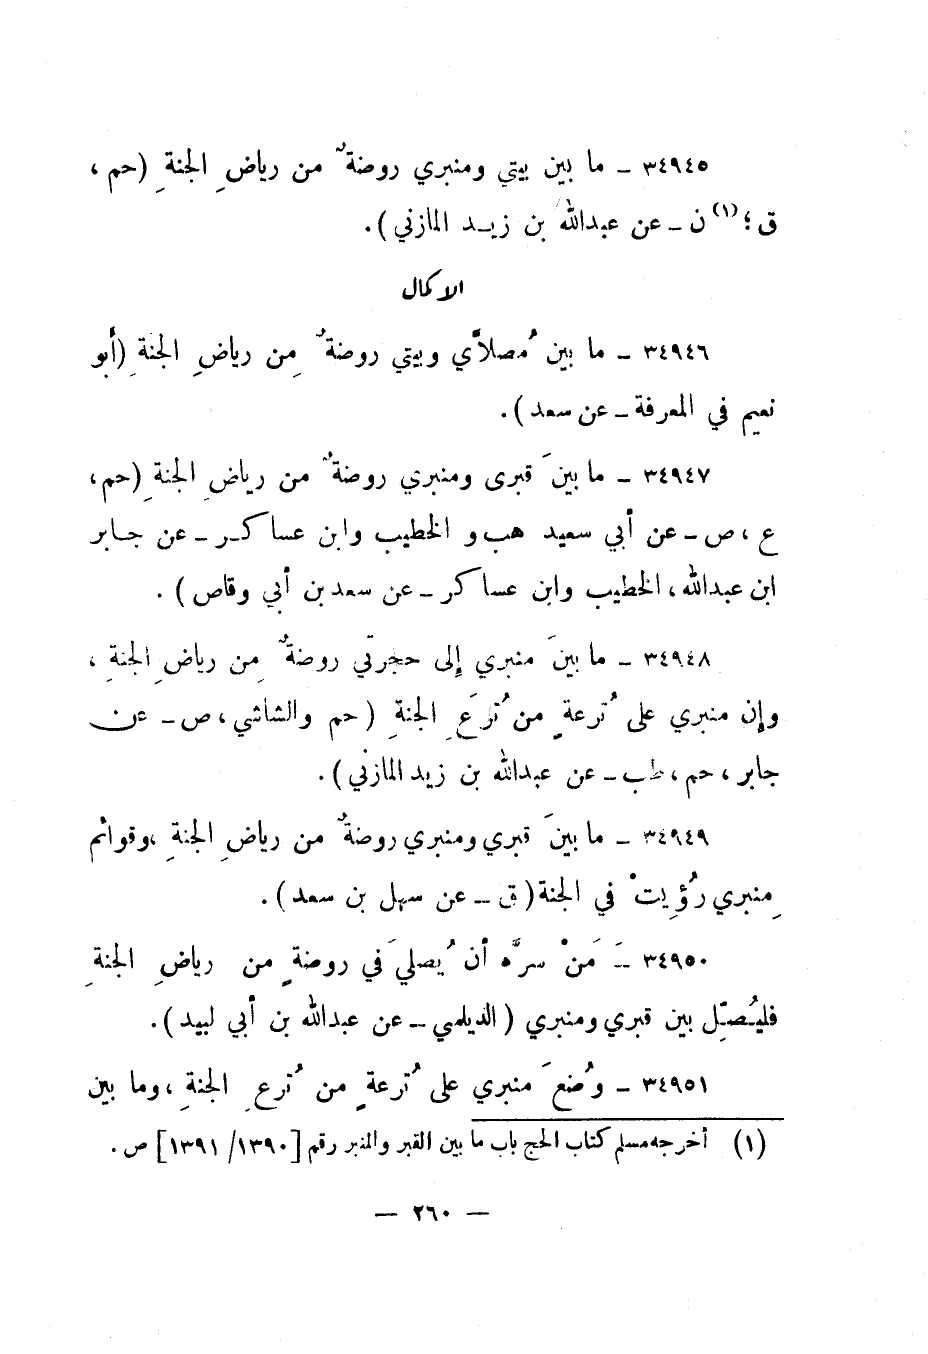 ٣٤٩٤٥ ــ ما بين بيتي ومنبري روضةٌ من رياضِ الجنةِ (حم ،
ق ؛(١) ن ــ عن عبدالله بن زيـد المازني ) .
الاكمال
٣٤٩٤٦ ــ ما بين مُصلاَّي وبيتي روضةٌ مِن رياضِ الجنةِ (أبو
نعيم في المعرفة ــ عن سعد ) .
٣٤٩٤٧ ــ ما بينَ قبرى ومنبري روضةٌ من رياضِ الجنةِ (حم ،
ع ، ص ــ عن أبي سعيد هب و الخطيب وابن عساكـر ــ عن جـابر
ابن عبدالله ، الخطيب وابن عساكر ــ عن سعد بن أبي وقاص ) .
٣٤٩٤٨ ــ ما بينَ منبري إلى حجرتي روضةٌ مِن رياضِ الجنةِ ،
وإن منبري على تُرعةٍ من تُرَعِ الجنةِ (حم والشاشي ، ص ــ عن
جابر ، حم ، طب ــ عن عبدالله بن زيد المازني ) .
٣٤٩٤٩ ــ ما بينَ قبري ومنبري روضةٌ من رياضِ الجنةِ ، وقوائم
مِنبري رُؤِيتْ في الجنة ( ق ــ عن سهل بن سعد ) .
٣٤٩٥٠ ــ مَنْ سرَّه أن يُصليَ في روضةٍ من رياضِ الجنةِ
فليُصلِّ بين قبري ومنبري ( الديلمي ــ عن عبدالله بن أبي لبيد ) .
٣٤٩٥١ ــ وُضعَ منبري على تُرعةٍ من تُرعِ الجنةِ ، وما بين
(١) أخرجه مسلم كتاب الحج باب ما بين القبر والمنبر رقم [١٣٩٠/ ١٣٩١] ص .
— ٢٦٠ —